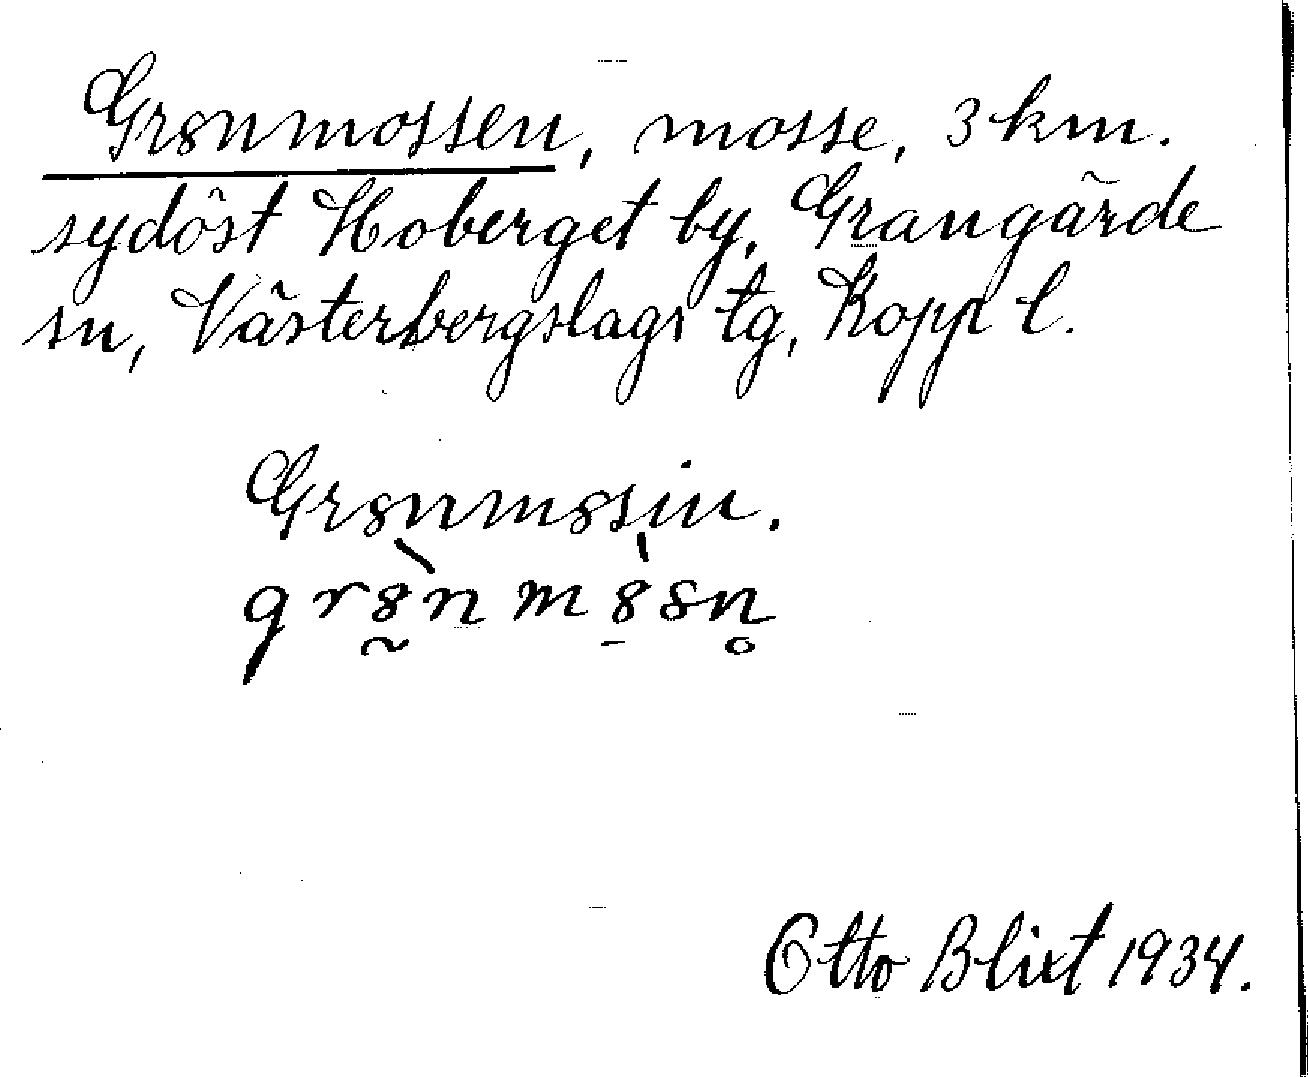 Grønmossen, mosse, 3 km.
sydöst Hoberget by, Grangärde
sn, Västerbergslags tg, Kopp l.
Grønmøsin.
Otto Blixt 1934.